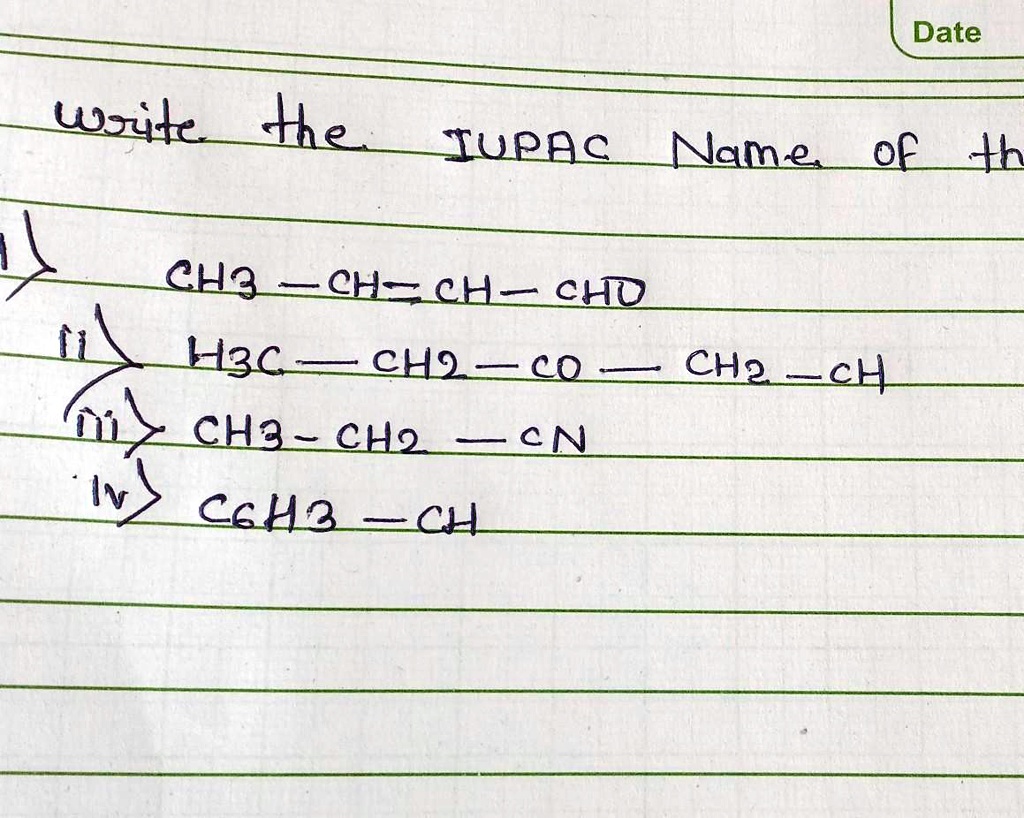 Date
write the IUPAC Name of th
i) CH3 – CH = CH – CHO
ii) H3C – CH2 – CO – CH2 – CH
iii) CH3 – CH2 – CN
iv) C6H3 – CH